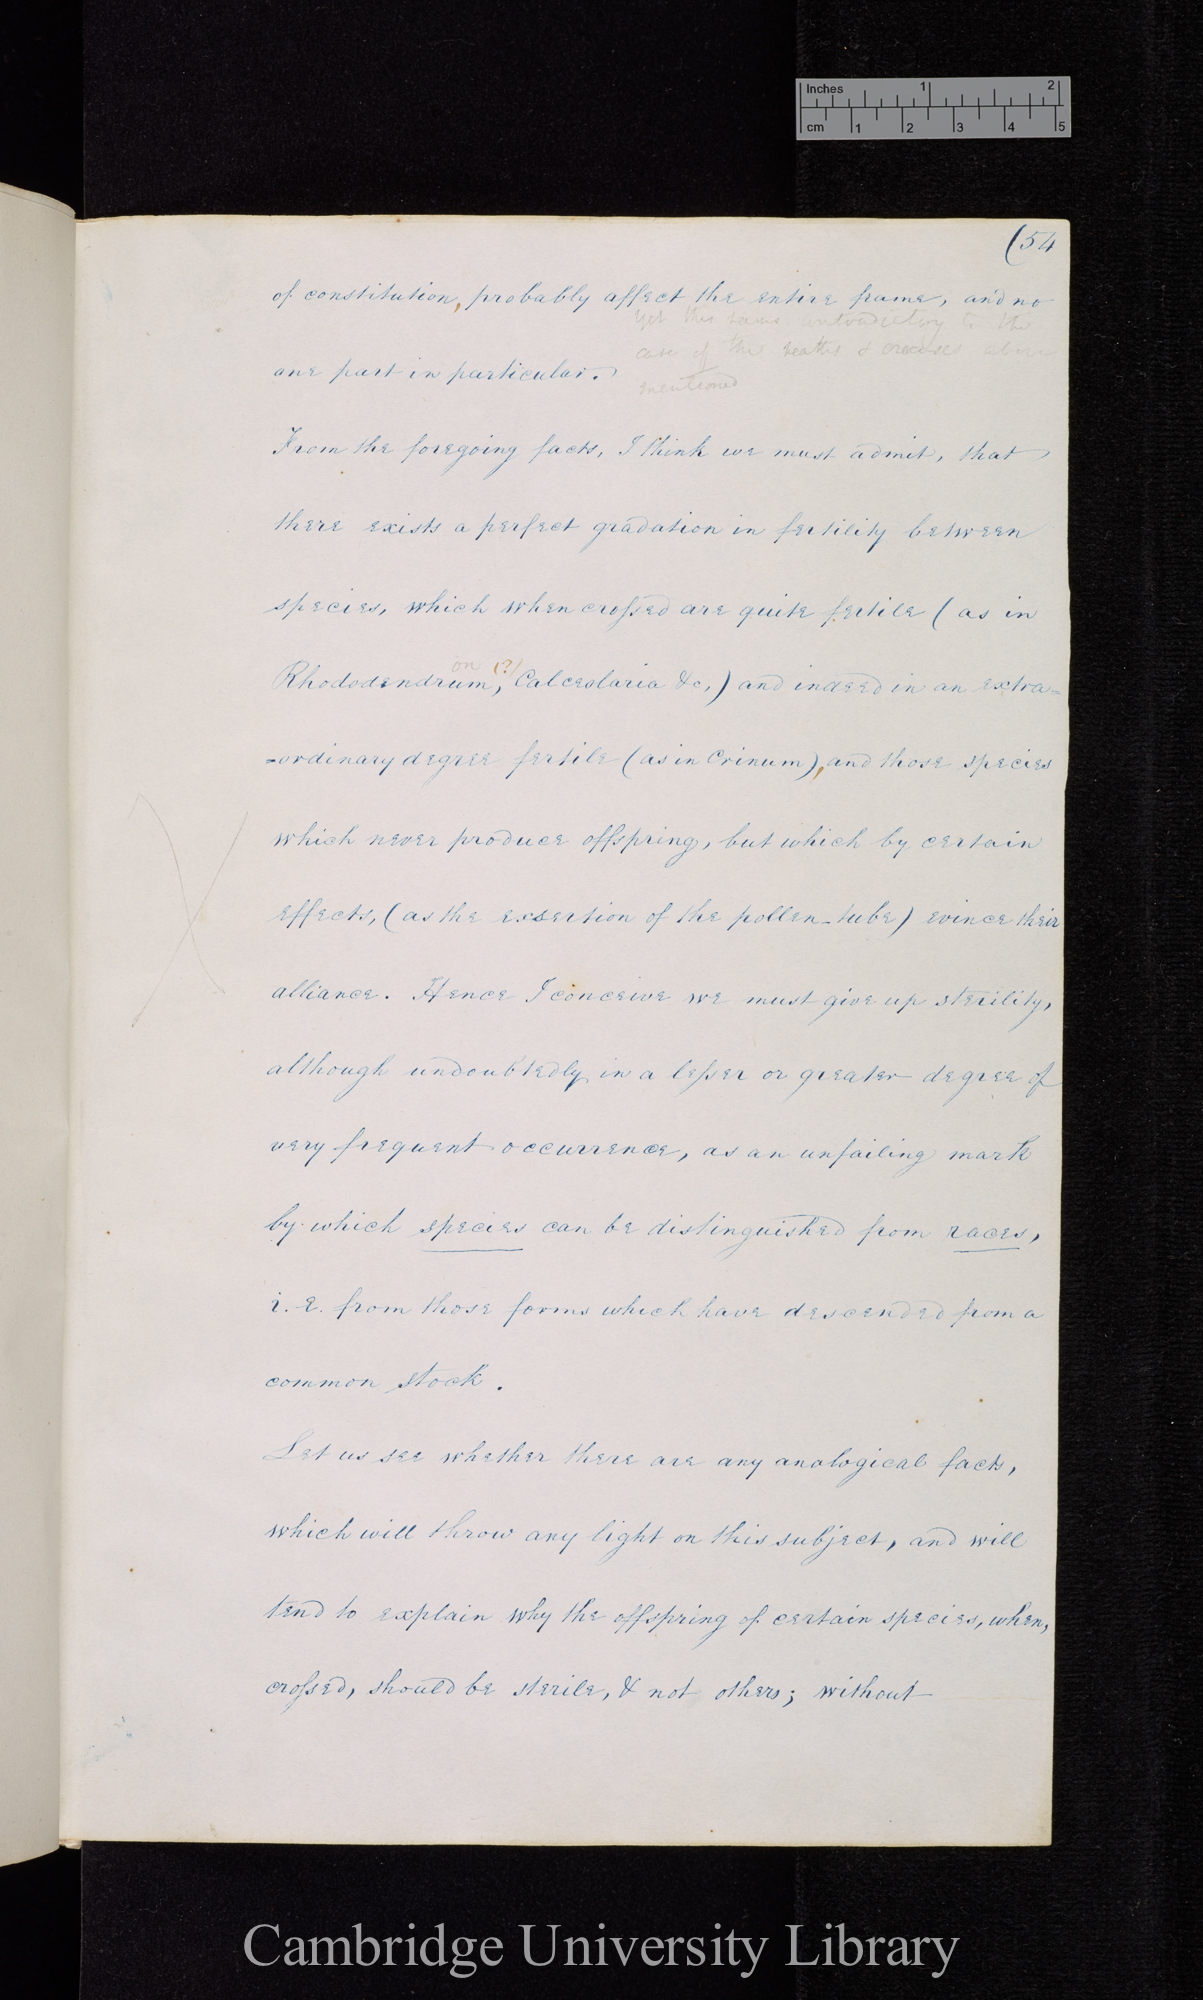 Inches 1 2
cm 1 2 3 4 5
(54
of constitution, probably affect the entire frame, and no
Yet this seems contradictory to the
case of the heaths & crocuses above
one part in particular.
mentioned
From the foregoing facts, I think we must admit, that
there exists a perfect gradation in fertility between
species, which when crossed are quite fertile (as in
on (?)
Rhododendrum, Calceolaria &c,) and indeed in an extra=
=ordinary degree fertile (as in Crinum), and those species
which never produce offspring, but which by certain
effects, (as the exsertion of the pollen-tube) evince their
alliance. Hence I conceive we must give up sterility,
although undoubtedly in a lesser or greater degree of
very frequent occurrence, as an unfailing mark
by which species can be distinguished from races,
i.e. from those forms which have descended from a
common stock.
Let us see whether there are any analogical facts,
which will throw any light on this subject, and will
tend to explain why the offspring of certain species, when,
crossed, should be sterile, & not others; without
Cambridge University Library